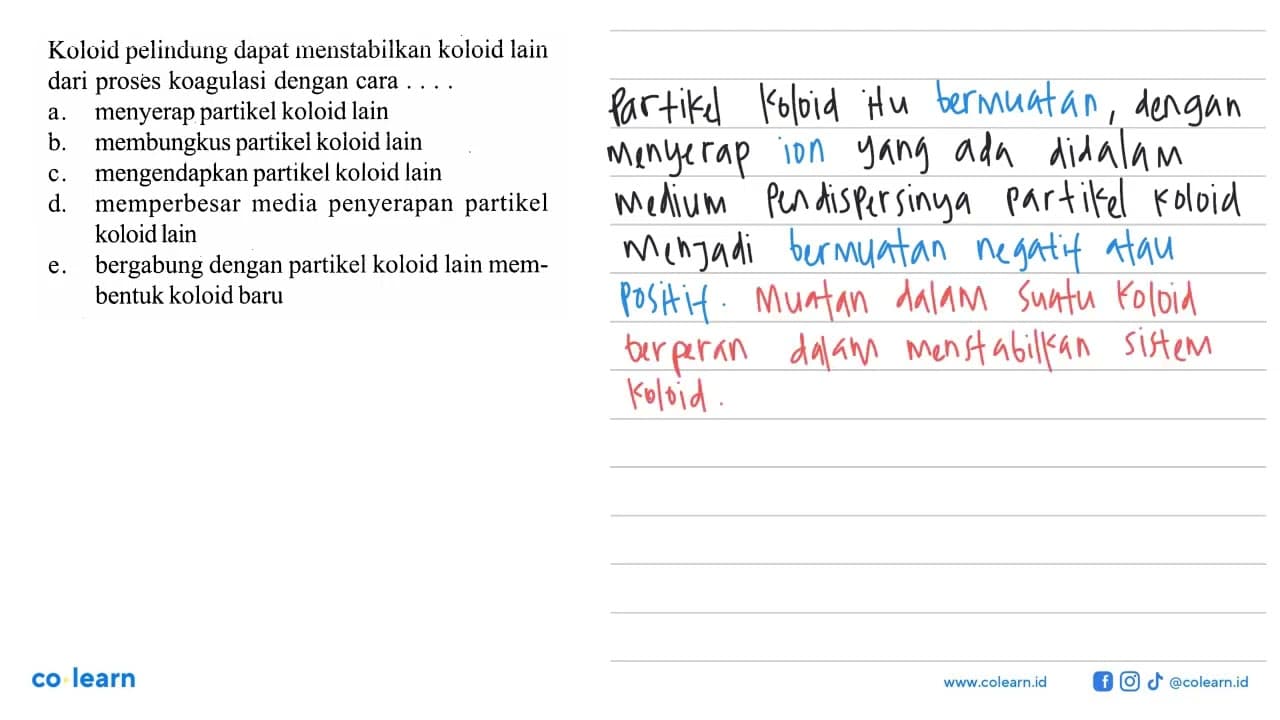 Koloid pelindung dapat menstabilkan koloid lain
dari proses koagulasi dengan cara . . . .
a. menyerap partikel koloid lain
b. membungkus partikel koloid lain
c. mengendapkan partikel koloid lain
d. memperbesar media penyerapan partikel
koloid lain
e. bergabung dengan partikel koloid lain mem-
bentuk koloid baru
Partikel koloid itu bermuatan, dengan
menyerap ion yang ada didalam
medium pendispersinya partikel koloid
menjadi bermuatan negatif atau
positif. Muatan dalam suatu koloid
berperan dalam menstabilkan sistem
koloid.
co learn
www.colearn.id
@colearn.id